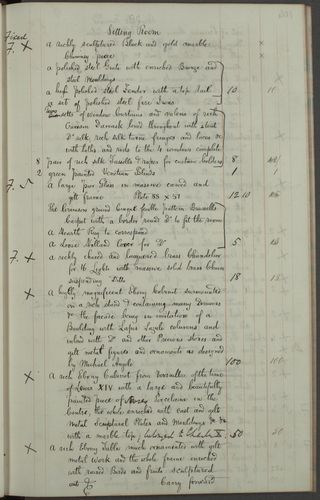 Sitting Room
Fixed
F. X a richly sculptured Black and gold marble
Chimney piece
a polished steel Grate with enriched Bronze and
steel Mouldings
a high polished steel Fender with a top
a set of polished steel fire Irons 10
of window Curtains and valens of rich
Crimson Damask lined throughout with
Do silk, rich silk fringe and
with laths and rods to the 4 windows complete
8 pair of rich silk Tassells & ropes for curtain holders 8
2 green painted Venetian Blinds 1 1
F. a large pier Glass in massive carved and
gilt frame Plate 88 x 51 12 10
The crimson ground Bouquet pattern Brussells
Carpet with a border round Do to fit the room
a Hearth Rug to correspond
a Loose Holland Cover for Do 5
F. X a richly chased and lacquered brass Chandelier
for 16 Lights with massive solid brass Chain
suspending Ditto 18
X a highly magnificent Ebony Cabinet surmounted
on a rich stand & containing many Drawers
&c the facade being in imitation of a
Building with Lapis Lazuli columns and
inlaid with Do and other Precious Stones and
gilt metal figures and ornaments as designed
by Michael Angelo 100 100
X a rich Ebony Cabinet from Versailles of the time
of Louis XIV with a large and beautifully
painted piece of Sevres Porcelaine in the
Centre, the whole enriched with cast and gilt
metal Sculptured Plates and Mouldings &c &c
with a marble top, belonged to Charles X 50 50
X a rich Ebony Table much ornamented with gilt
metal Work and the whole frame enriched
with raised Birds and fruits sculptured
out &c Carry forward